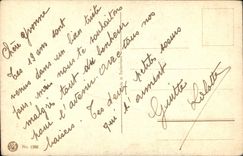 Chère Yvonne
Tes 19 ans sont
venus dans un bien triste
mais nous te souhaitons
malgré tout du bonheur
pour l'avenir avec tous nos
baisers. Tes deux petites sœurs
qui t'aiment
Guittes Lilotte
No. 1386